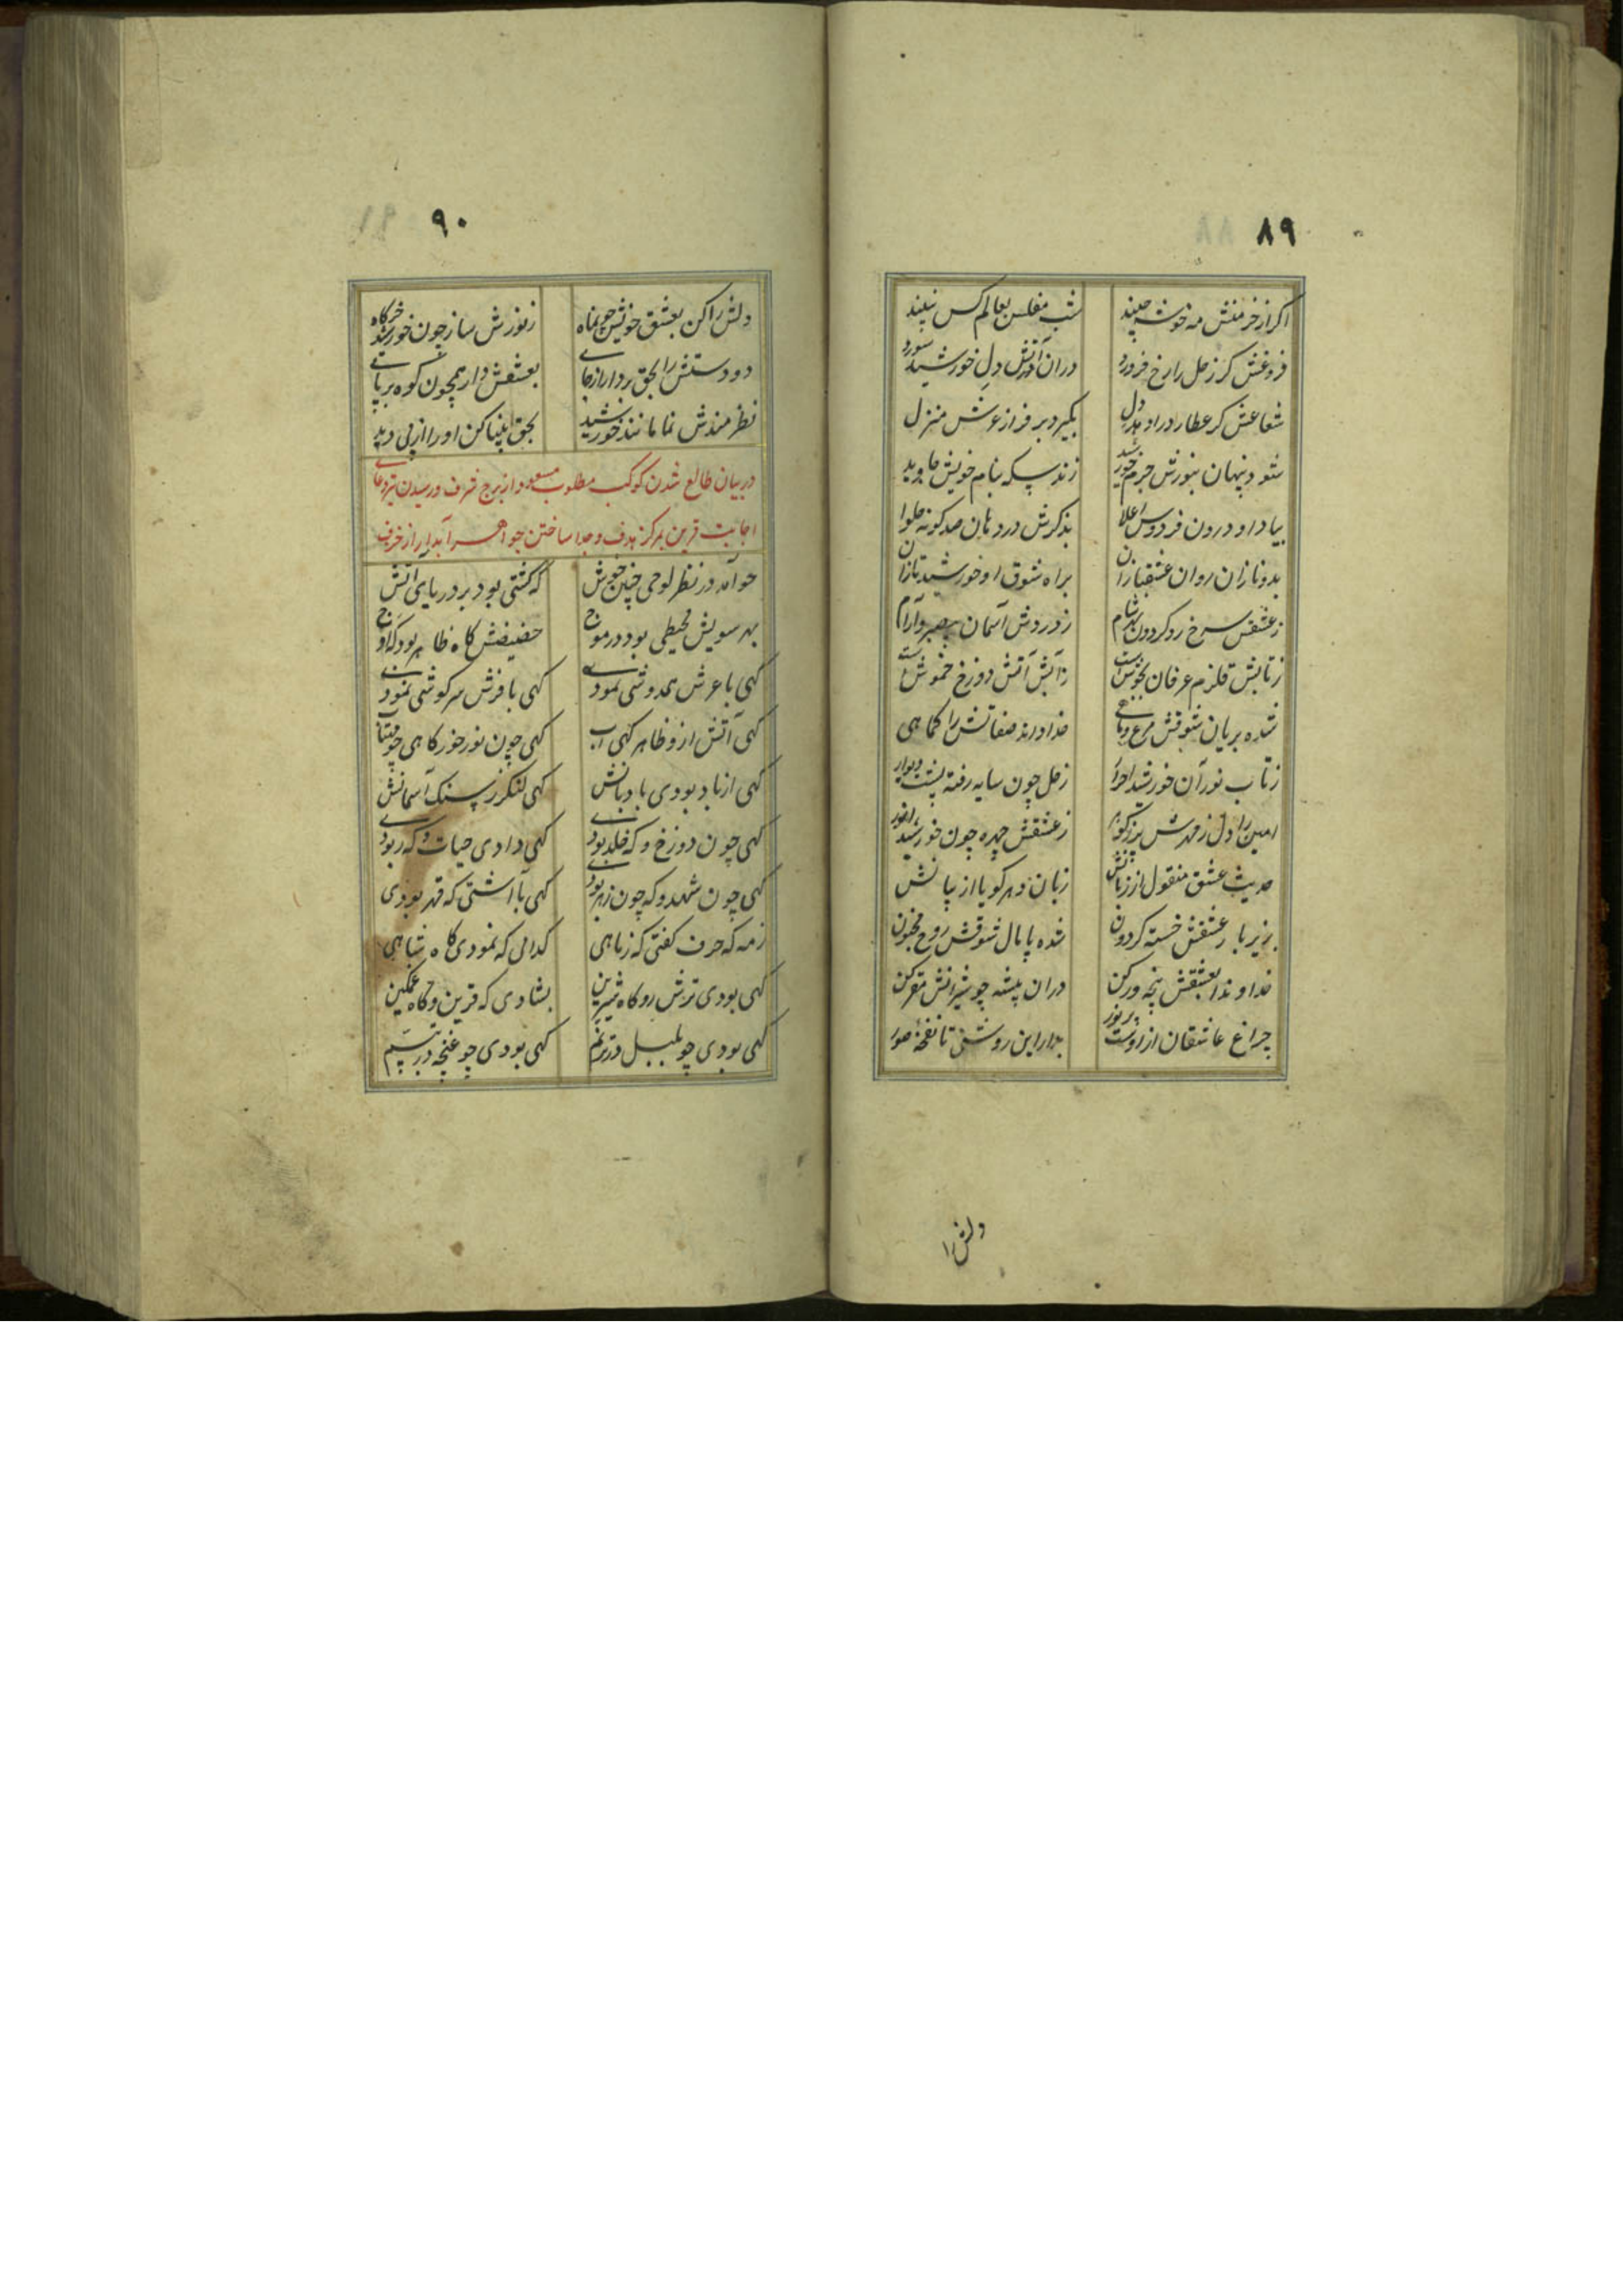 ۸۹
اگر از خرمنش مه خوشه چیند شب مفلس بعالم کس نبیند
فروغش گر زحل را رخ فروزد دران آتش دل خورشید سوزد
شعاعش گر عطارد را دهد دل بگیرد بر فراز عرش منزل
شود پنهان بنورش جرم خورشید زند سکه بنام خویش جاوید
بیاد او درون فردوس اعلا بذکرش در دهان صد گونه حلوا
بدو نازان روان عشقبازان براه شوق او خورشید تازان
ز عشقش سرخ رو گردون بدشام ز دردش آسمان بیصبر و آرام
ز تابش قلزم عرفان بجوشست ز آبش آتش دوزخ خموشست
شده بریان شوقش مرغ و ماهی خدا داند صفاتش را کماهی
ز تاب نور آن خورشید زحل چون سایه رفته پشت دیوار
امین را دل ز مهرش ز عشقش چهره چون خورشید انور
حدیث عشق منقول از زبانش زبان دهر گویا از بیانش
بزیر بار عشقش خسته گردون شده پامال شوقش روح مجنون
خداوندا بعشقش پنجه ور کن دران بیشه چو شیرانش مقر کن
چراغ عاشقان از اوست پر نور بدار این روشنی تا نفخهٔ صور
دلش را
۹۰
دلش را کن بعشق خویش چون ماه ز نورش ساز چون خورشید خرگاه
دو دستش را بحق بردار از جای بعشقش دار همچون کوه بر پای
نظرمندش نما مانند خورشید بحق بینا کن او را از پی دید
در بیان طالع شدن کوکب مطلوب مسعود از برج شرف و رسیدن تیر دعای
اجابت قرین بمرکز هدف و جدا ساختن جواهر آبدار از خزف
چو آمد در نظر لوحی چنین خوش که کشتی بود بر دریای آتش
بهر سویش محیطی بود در موج حضیضش گاه ظاهر بود گه اوج
گهی با عرش همدوشی نمودی گهی با فرش سرگوشی نمودی
گهی آتش ازو ظاهر گهی آب گهی چون نور خور گاهی چو مهتاب
گهی از باد بودی بادبانش گهی لنگر ز سنگ آسمانش
گهی چون دوزخ و گه خلد بودی گهی دادی حیات و گه ربودی
گهی چون شهد و گه چون زهر بودی گهی با آشتی گه قهر بودی
ز مه گه حرف گفتی گه ز ماهی گدائی گه نمودی گاه شاهی
گهی بودی ترش رو گاه شیرین بشادی گه قرین و گاه غمگین
گهی بودی چو بلبل در ترنم گهی بودی چو غنچه در تبسم